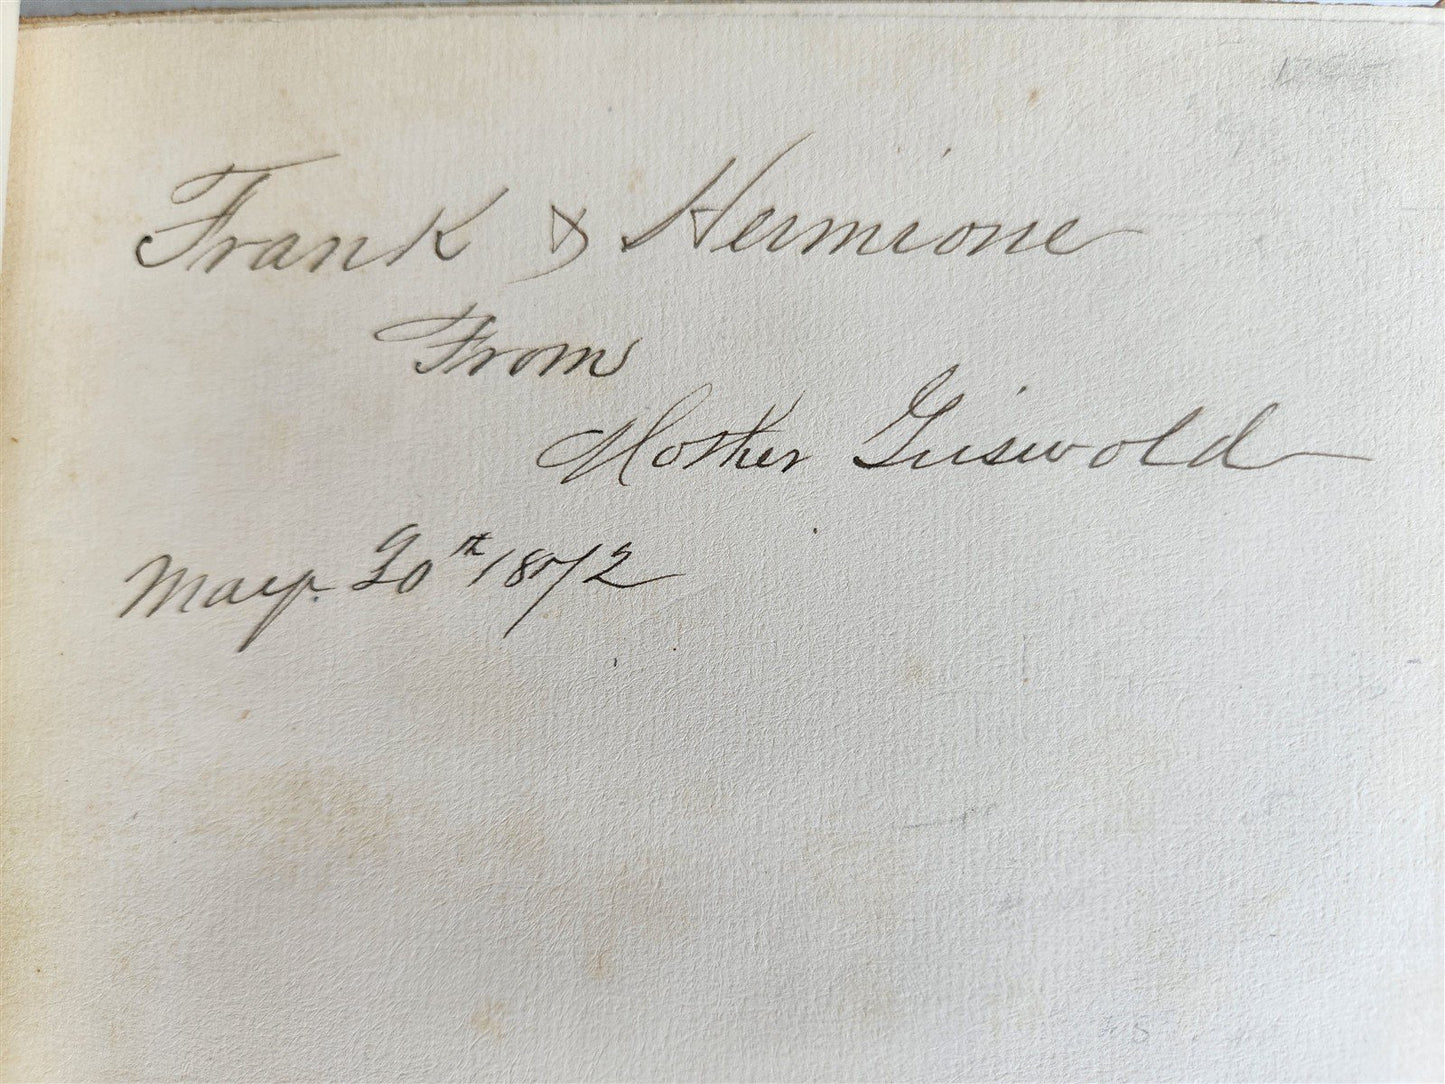 Frank & Hermione
From
Mother Griswold
May. 20th 1872